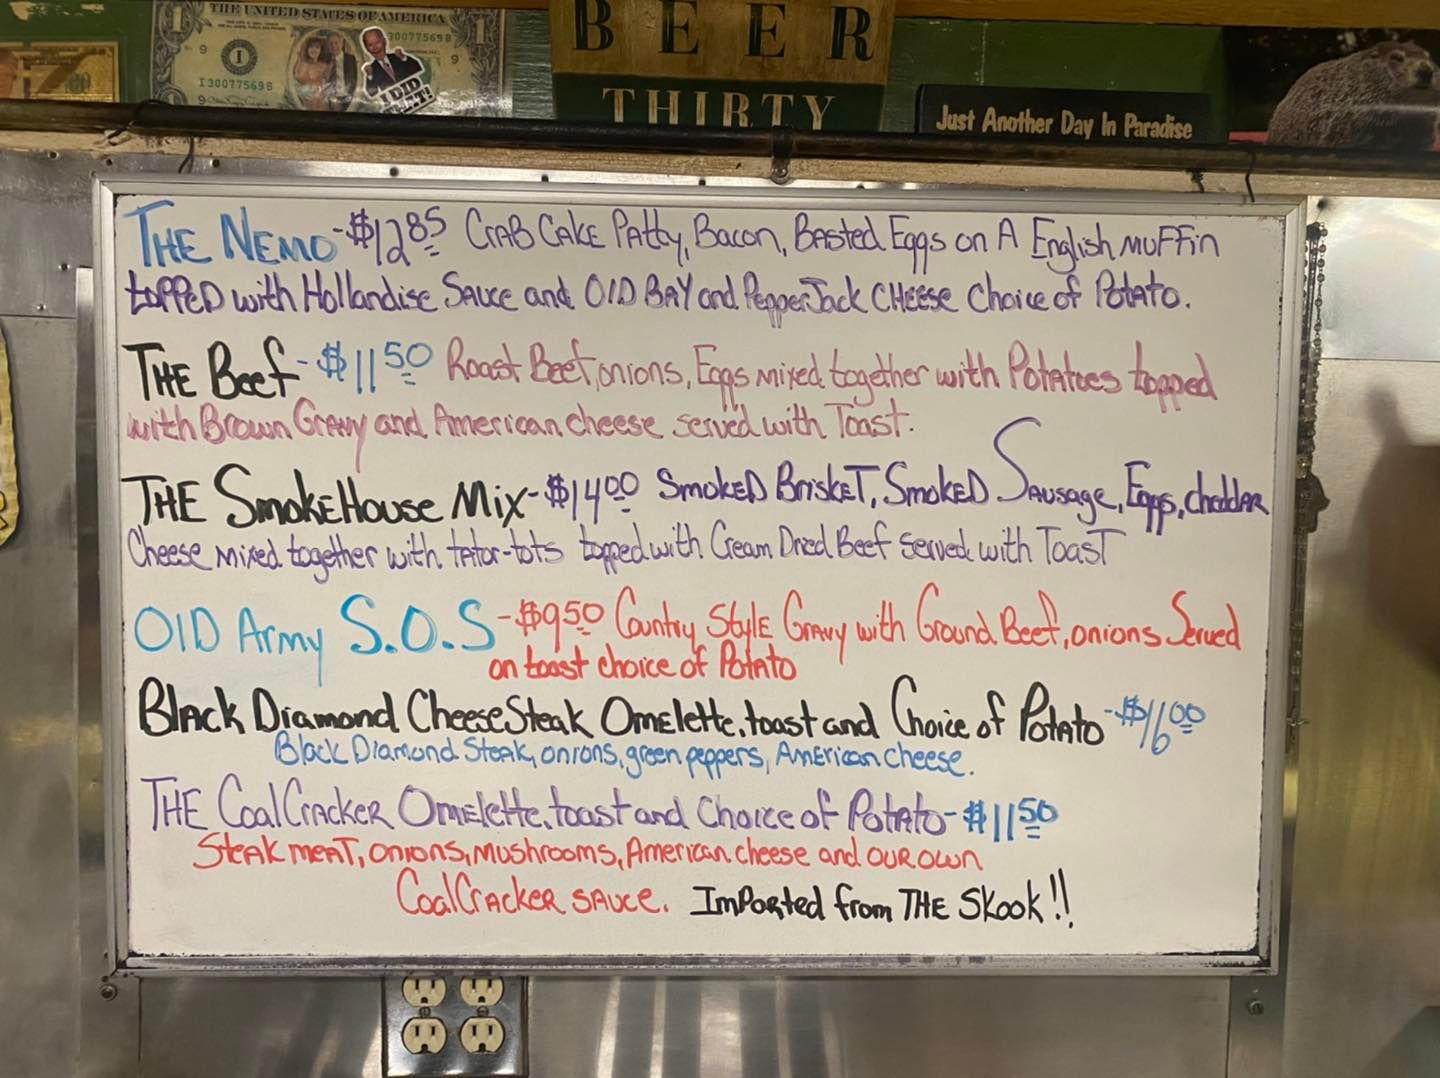 THE UNITED STATES OF AMERICA
1
1
I30077569B
I30077569B
9
9
9
1
I DID
THAT!
BEER
THIRTY
Just Another Day In Paradise
THE NEMO-$12.85 CRAB CAKE Patty, Bacon, Basted Eggs on A English muffin
topped with Hollandise Sauce and Old BAY and PepperJack CHEESE Choice of Potato.
THE Beef-$11.50 Roast Beef, onions, Eggs mixed together with Potatoes topped
with Brown Gravy and American cheese served with Toast.
THE SmokeHouse Mix-$14.00 SMOKED BRISKET, SMOKED Sausage, Eggs, cheddar
Cheese mixed together with tator-tots topped with Cream Dried Beef served with Toast
Old Army S.O.S-$9.50 Country Style Gravy with Ground Beef, onions Served
on toast choice of Potato
Black Diamond CheeseSteak Omelette, toast and Choice of Potato-$16.00
Black Diamond Steak, onions, green peppers, American cheese.
THE CoalCracker Omelette, toast and Choice of Potato-$11.50
Steak meat, onions, mushrooms, American cheese and our own
CoalCracker sauce. Imported from THE Skook!!